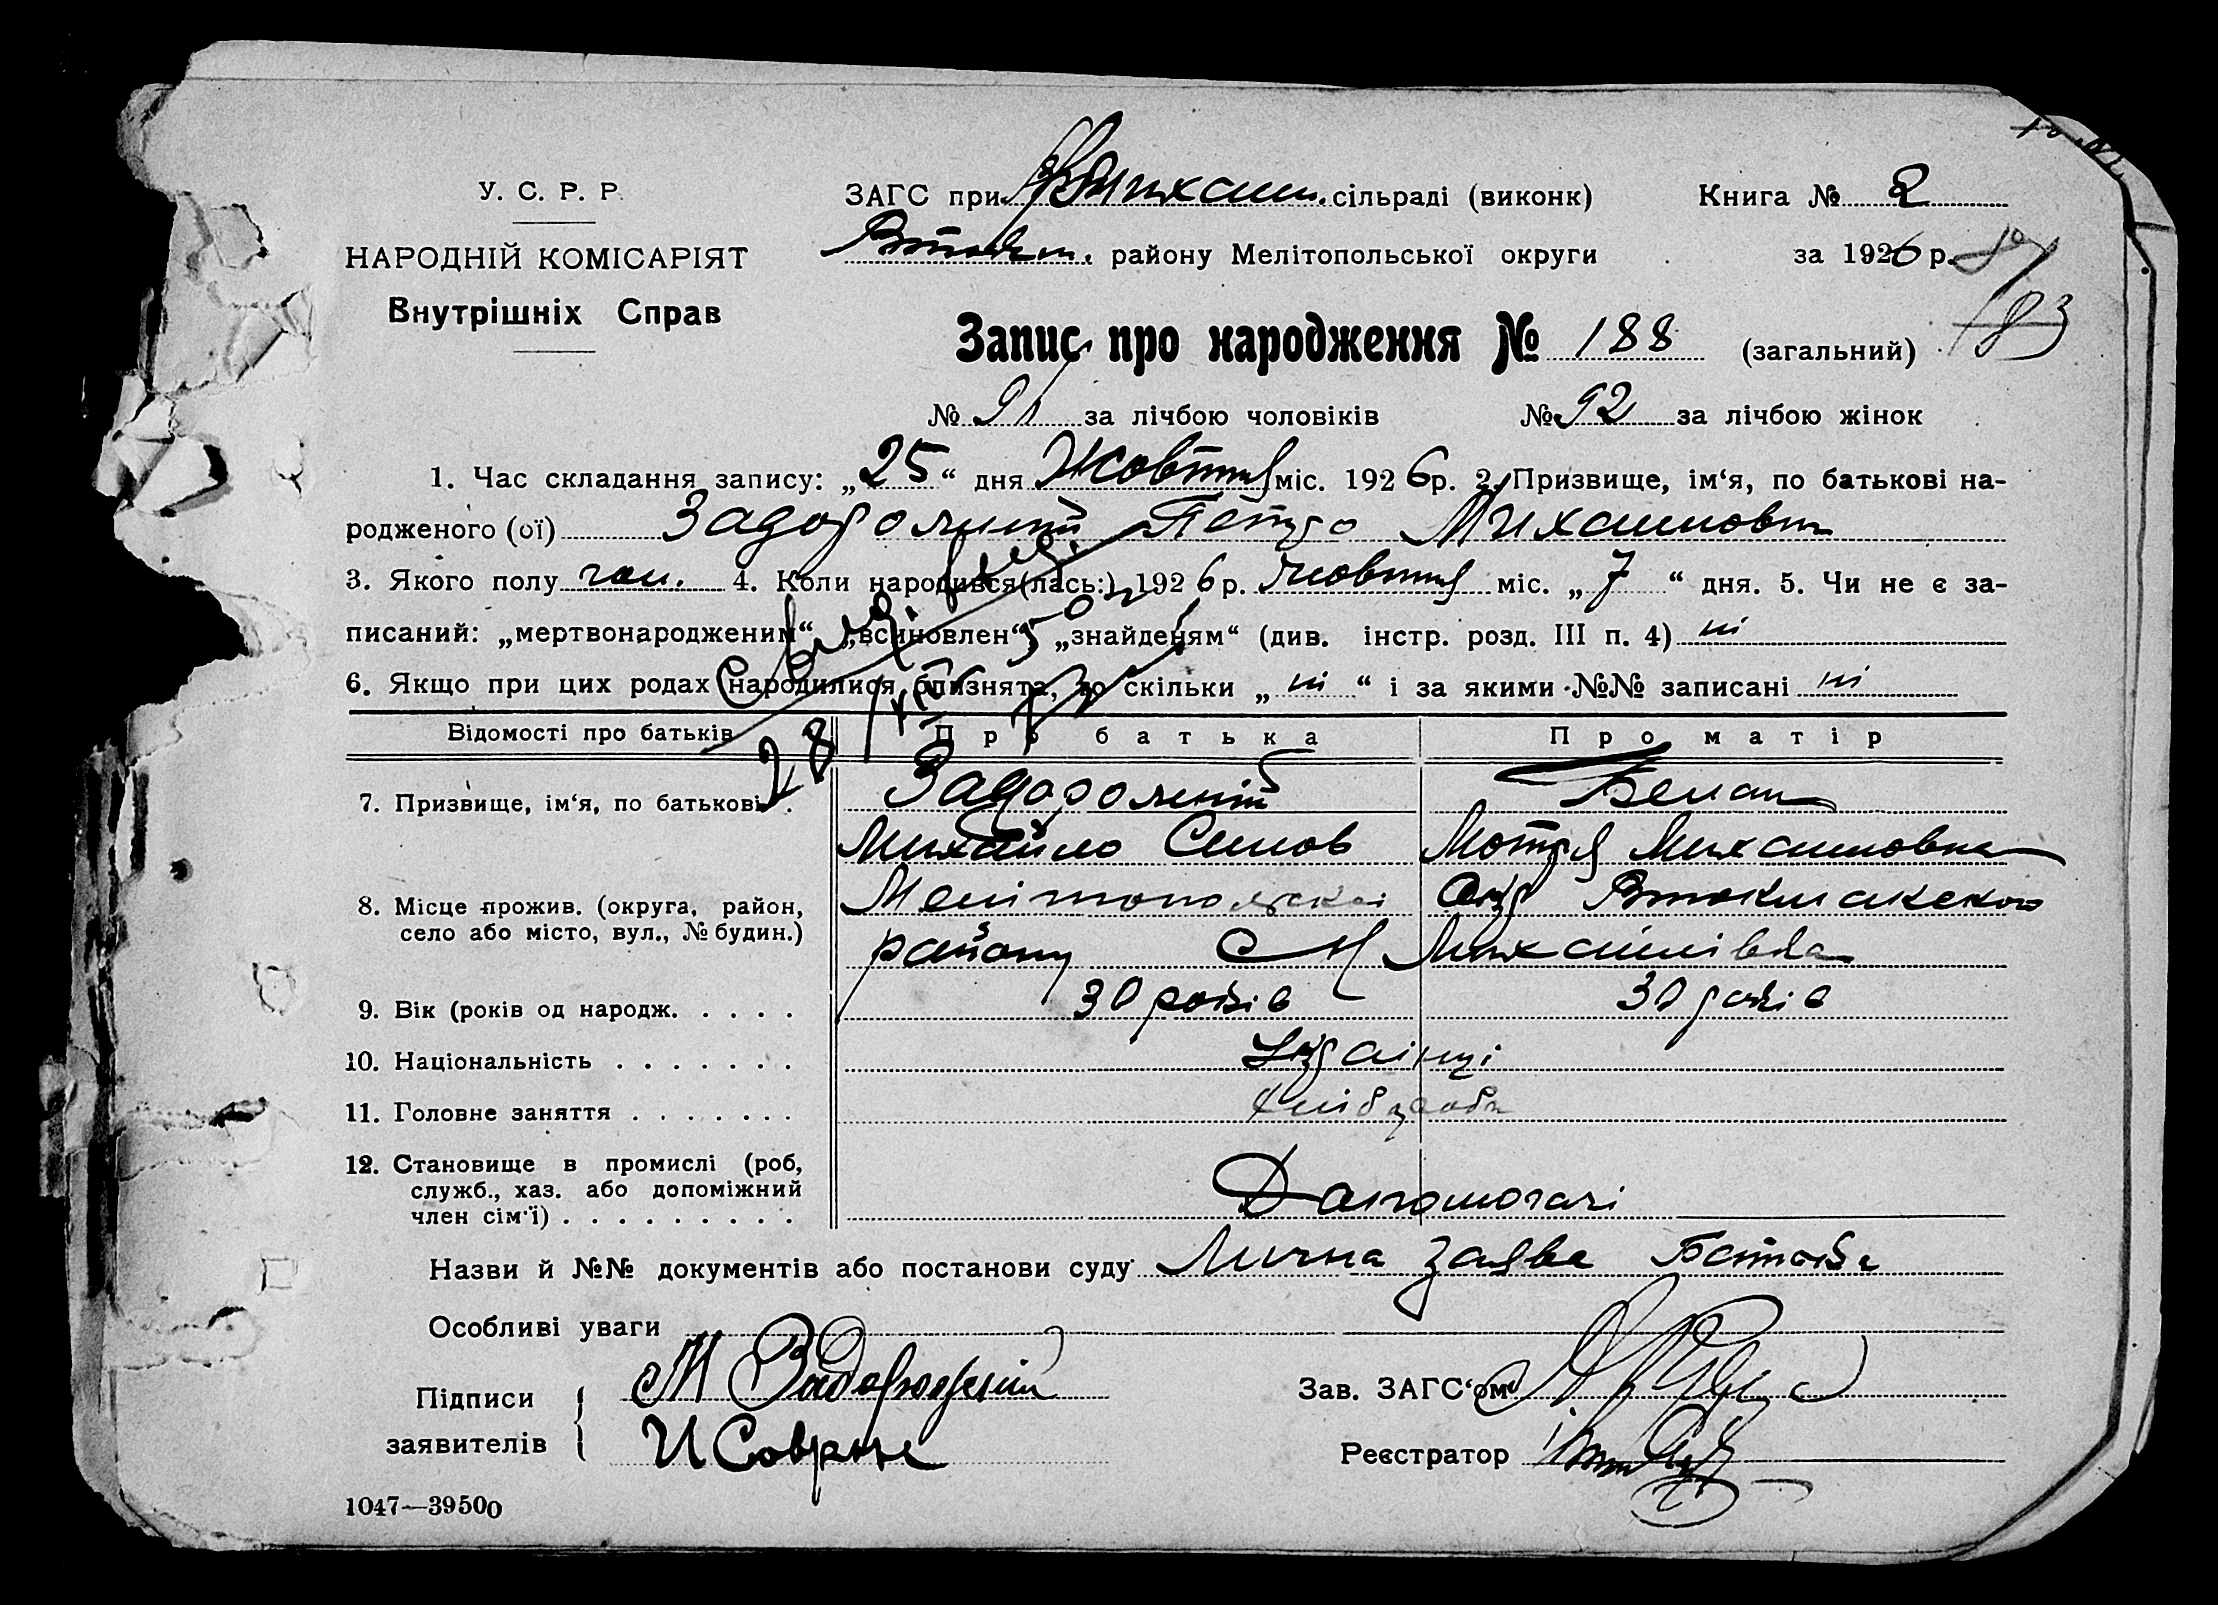 У. С. Р. Р.
НАРОДНІЙ КОМІСАРІЯТ
Внутрішніх Справ
ЗАГС при сільраді (виконк)
Книга № 2
району Мелітопольської округи
за 1926 р.
183
Запис про народження № 188 (загальний)
№ 91 за лічбою чоловіків № 92 за лічбою жінок
1. Час складання запису: „25“ дня Жовтня міс. 1926 р. 2. Призвище, ім‘я, по батькові на-
родженого (ої) Задорожний Петро Михайлович
3. Якого полу чол. 4. Коли народився(лась:) 1926 р. жовтня міс. „7“ дня. 5. Чи не є за-
писаний: „мертвонародженим“ „всиновлен“ „знайденям“ (див. інстр. розд. III п. 4) ні
6. Якщо при цих родах народилися близнята, то скільки „ні“ і за якими №№ записані ні
28
Відомості про батьків Про батька Про матір
7. Призвище, ім‘я, по батькові Задорожний Белан
Михайло Семов Мотря Михайловна
8. Місце прожив. (округа, район, Мелітопольскої Окр Втокмакского
село або місто, вул., № будин.) району С М Михайлівка
9. Вік (років од народж. 30 років 30 років
10. Національність Українці
11. Головне заняття хлібороби
12. Становище в промислі (роб,
служб., хаз. або допоміжний
член сім‘ї) Допомогачі
Назви й №№ документів або постанови суду Лична заява Батька
Особливі уваги
Підписи М Задорожний
заявителів
И
Зав. ЗАГС‘ом
Реєстратор
1047—39500